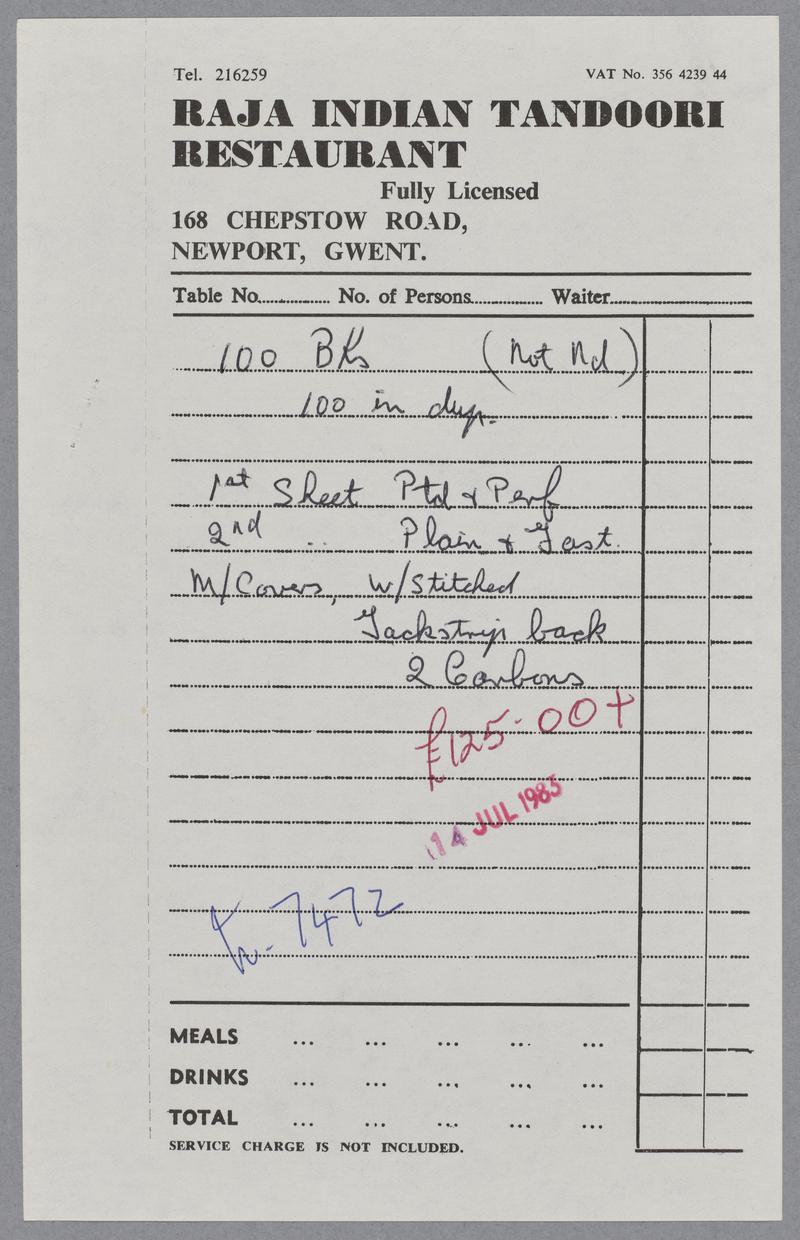 Tel. 216259 VAT No. 356 4239 44
RAJA INDIAN TANDOORI
RESTAURANT
Fully Licensed
168 CHEPSTOW ROAD,
NEWPORT, GWENT.
Table No............... No. of Persons............... Waiter...............
100 BKs (Not Nd)
100 in dup.
1st Sheet Ptd & Perf
2nd .. Plain & Fast.
M/Covers, W/Stitched
Jackstrip back
2 Carbons
£125.00+
14 JUL 1983
7472
MEALS ... ... ... ... ...
DRINKS ... ... ... ... ...
TOTAL ... ... ... ... ...
SERVICE CHARGE IS NOT INCLUDED.